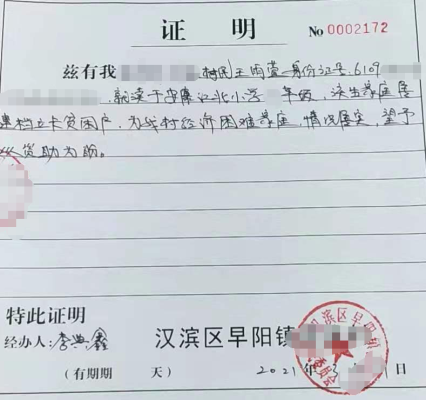 证 明
No 0002172
兹有我 村民王雨萱身份证号:6109
就读于安康江北小学 年级,该生家庭属
建档立卡贫困户,为我村经济困难家庭,情况属实,望予
以资助为盼。
特此证明
经办人:李典鑫 汉滨区早阳镇
(有期期 天) 2021年3 日
汉滨区早阳
委员会